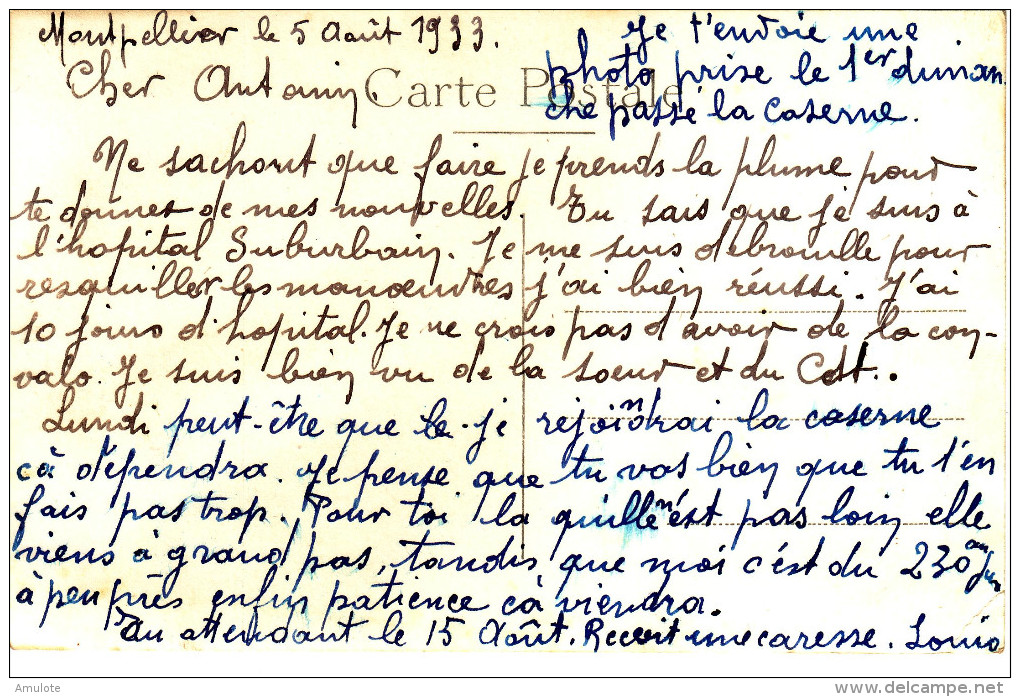 Montpellier le 5 Août 1933.
Cher Antonin.
Je t'envoie une
photo prise le 1er diman
che passé la caserne.
Carte Postale
Ne sachant que faire je prends la plume pour
te donner de mes nouvelles. Tu sais que je suis à
l'hopital Suburbain. Je me suis débrouille pour
resquiller les manoeuvres j'ai bien réussi. J'ai
10 jours d'hopital. Je ne crois pas d'avoir de la con-
valo. Je suis bien vu de la soeur et du Cdt..
Lundi peut-être que je rejoindrai la caserne
cà dépendra. Je pense que tu vas bien que tu t'en
fais pas trop. Pour toi la quille n'est pas loin elle
viens à grand pas, tandis que moi c'est du 230 au jus
à peu près enfin patience cà viendra.
En attendant le 15 Août. Recoit une caresse. Louis
Amulote
www.delcampe.net